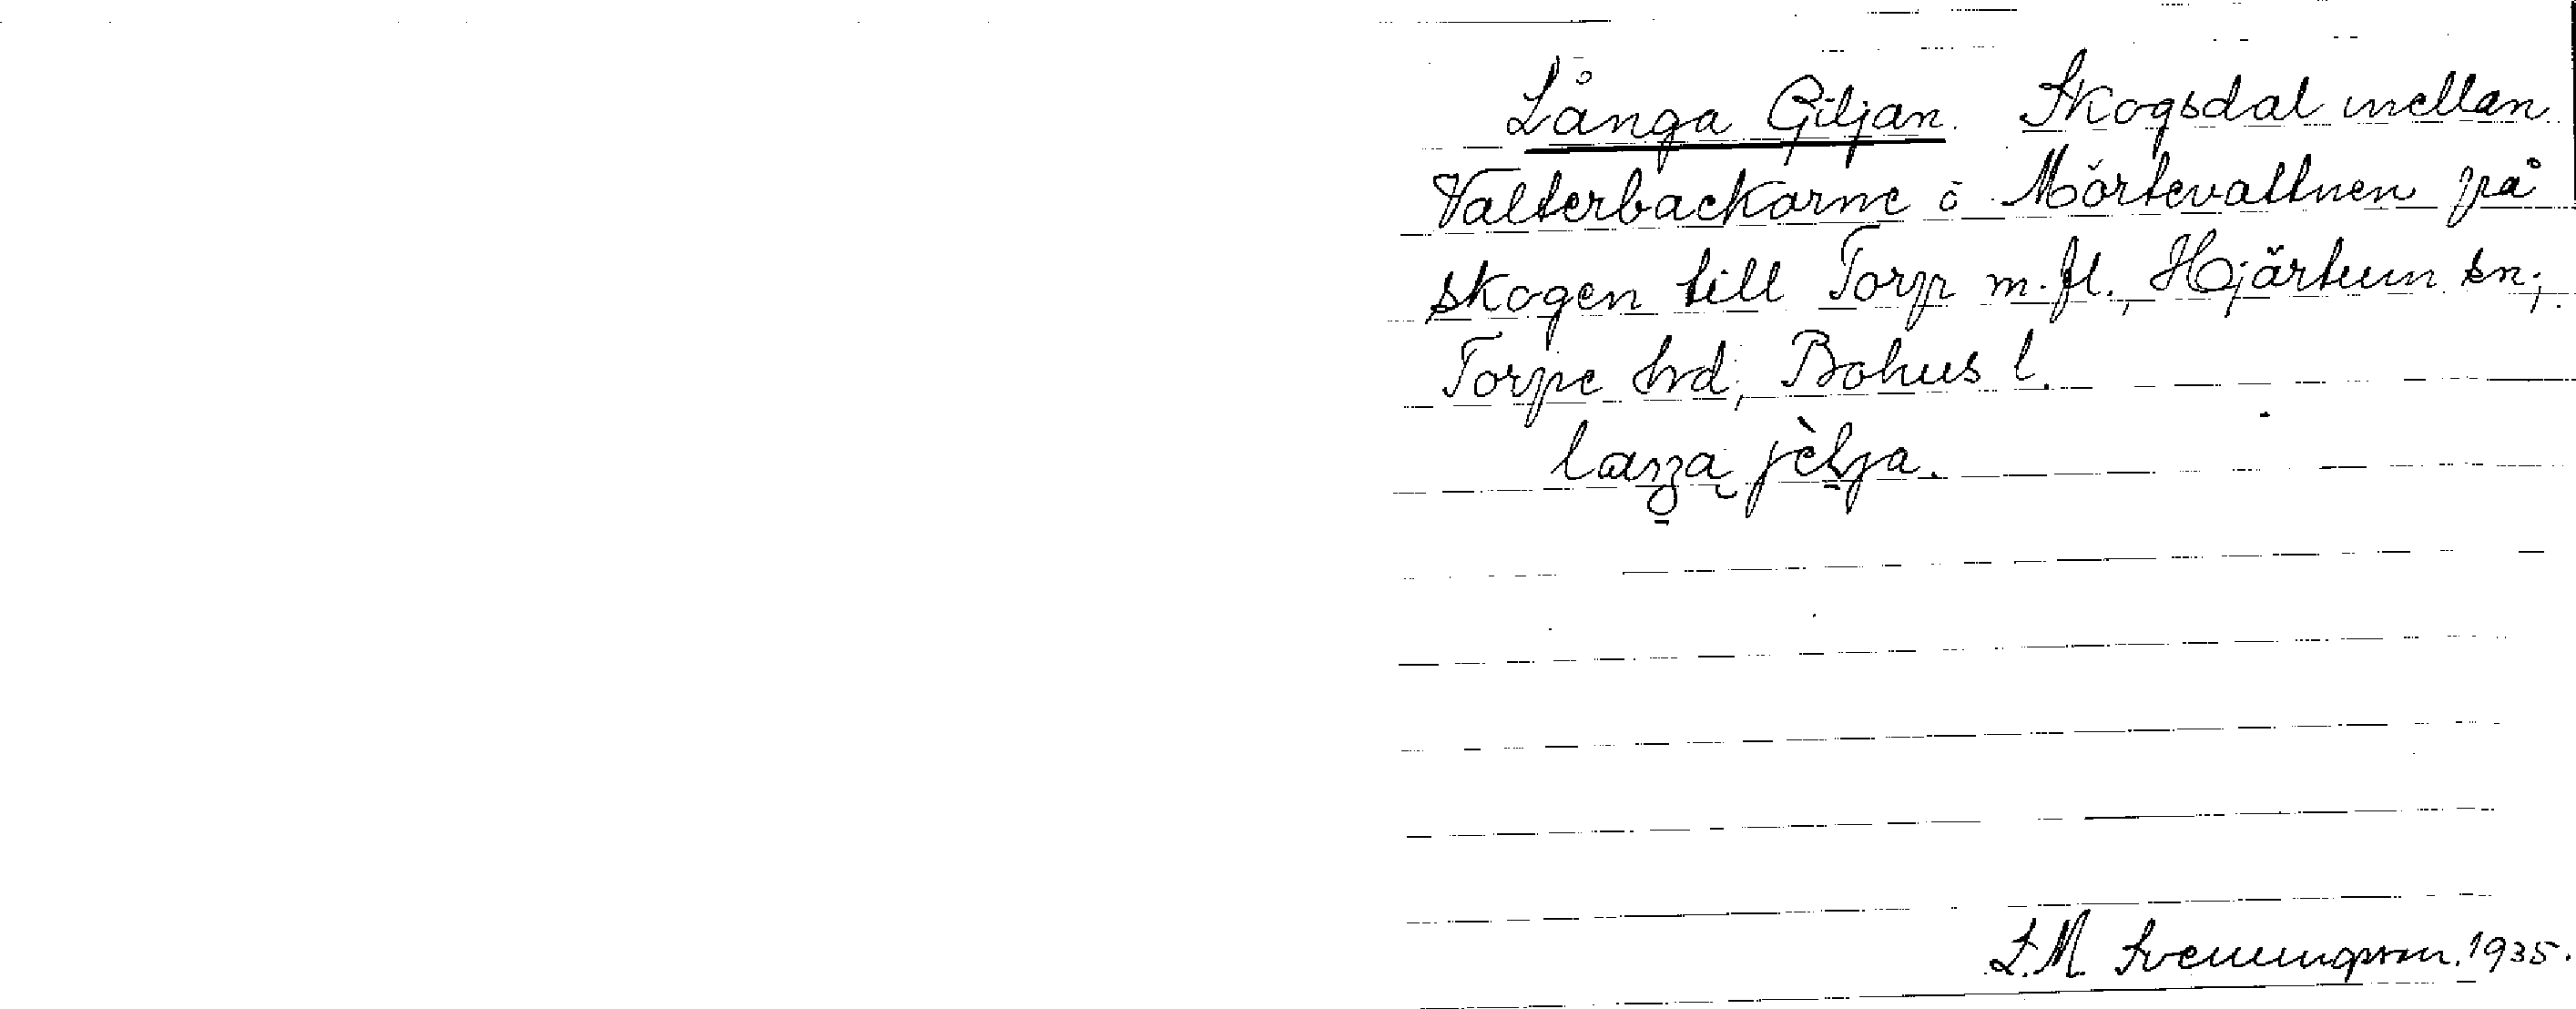 Långa Giljan. Skogsdal mellan
Valterbackarne o Mörtevattnen på
skogen till Torp m.fl., Hjärtum sn;
Torpe hrd, Bohus l.
L.M. Svenungsson. 1935.